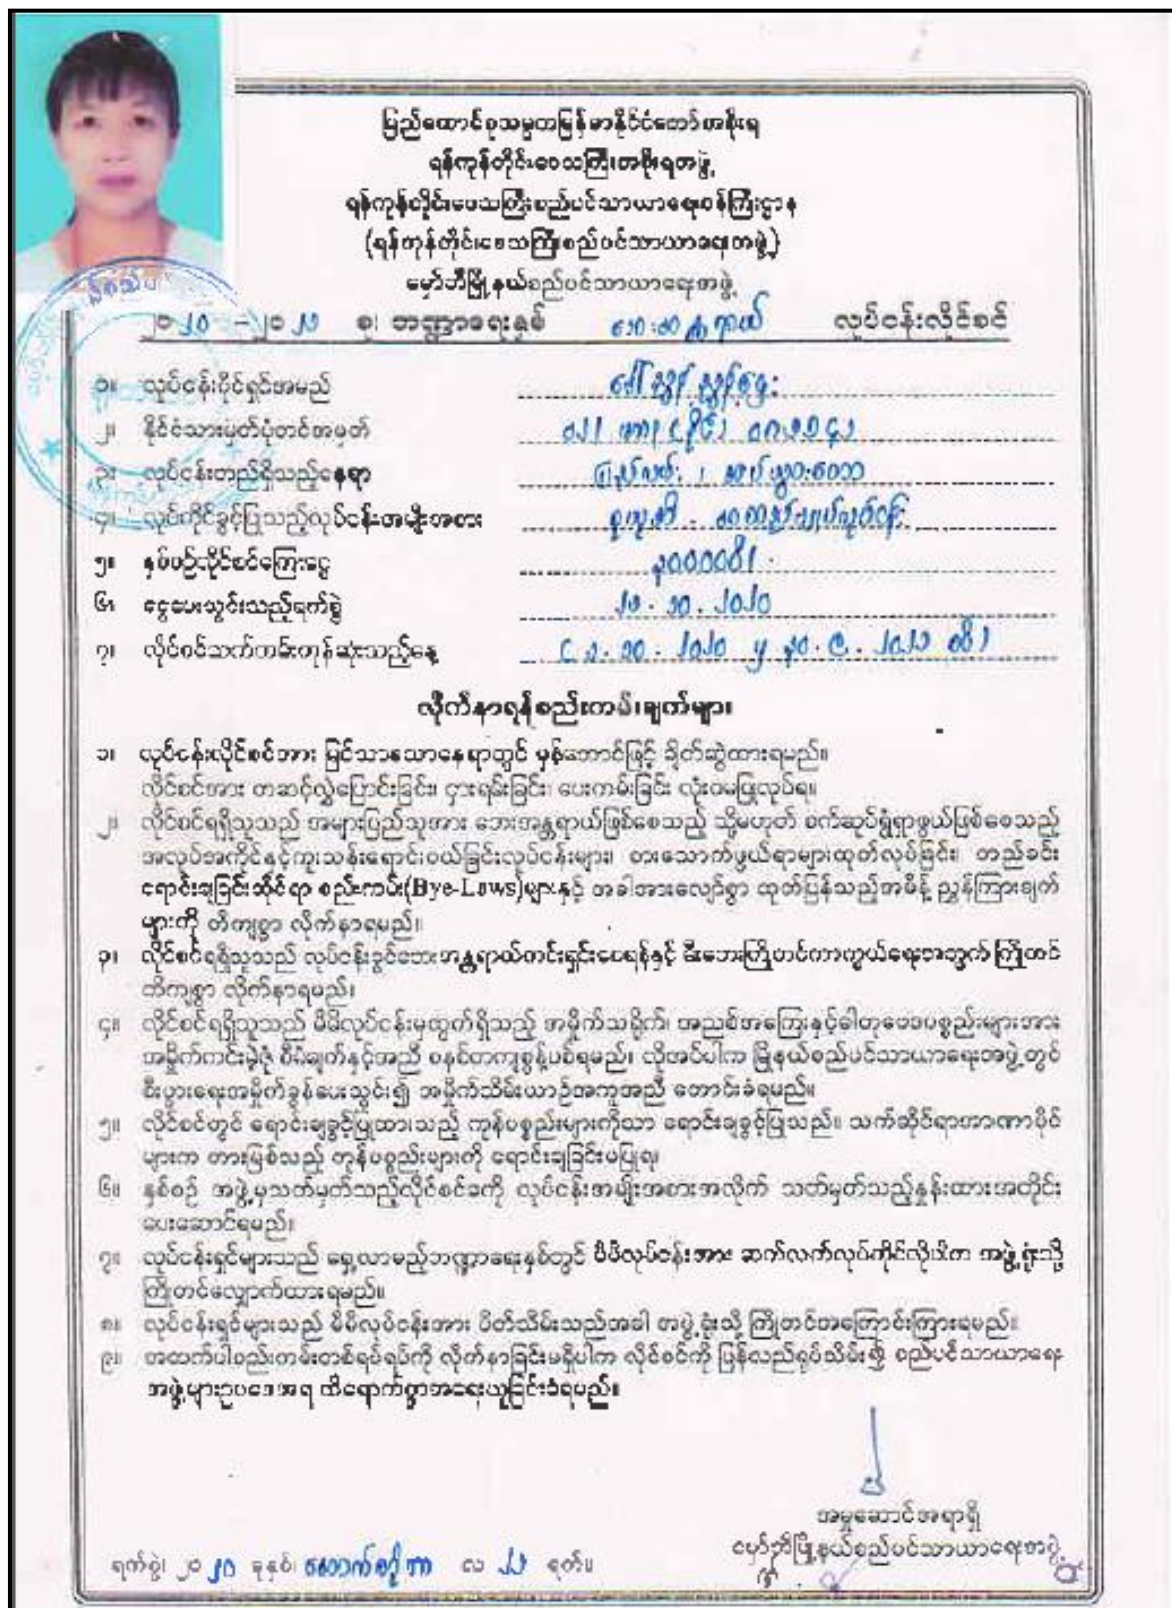 ပြည်ထောင်စုသမ္မတမြန်မာနိုင်ငံတော်အစိုးရ
ရန်ကုန်တိုင်းဒေသကြီးအစိုးရအဖွဲ့
ရန်ကုန်တိုင်းဒေသကြီးစည်ပင်သာယာရေးဝန်ကြီးဌာန
(ရန်ကုန်တိုင်းဒေသကြီးစည်ပင်သာယာရေးအဖွဲ့)
မှော်ဘီမြို့နယ်စည်ပင်သာယာရေးအဖွဲ့
၂၀၂၀ - ၂၀၂၁ ခု၊ ဘဏ္ဍာရေးနှစ် ဘေးအန္တရာယ် လုပ်ငန်းလိုင်စင်
၁။ လုပ်ငန်းပိုင်ရှင်အမည်
၂။ နိုင်ငံသားမှတ်ပုံတင်အမှတ်
၃။ လုပ်ငန်းတည်ရှိသည့်နေရာ
၄။ လုပ်ကိုင်ခွင့်ပြုသည့်လုပ်ငန်းအမျိုးအစား
၅။ နှစ်စဉ်လိုင်စင်ကြေးငွေ ၃၀၀၀၀၀ိ/-
၆။ ငွေပေးသွင်းသည့်ရက်စွဲ ၂၁.၁၀.၂၀၂၀
၇။ လိုင်စင်သက်တမ်းကုန်ဆုံးသည့်နေ့ ( ၁.၁၀.၂၀၂၀ မှ ၃၀.၉.၂၀၂၁ ထိ )
လိုက်နာရန်စည်းကမ်းချက်များ
၁။ လုပ်ငန်းလိုင်စင်အား မြင်သာသောနေရာတွင် မှန်ဘောင်ဖြင့် ချိတ်ဆွဲထားရမည်။
လိုင်စင်အား တဆင့်လွှဲပြောင်းခြင်း၊ ငှားရမ်းခြင်း၊ ပေးကမ်းခြင်း လုံးဝမပြုလုပ်ရ။
၂။ လိုင်စင်ရရှိသူသည် အများပြည်သူအား ဘေးအန္တရာယ်ဖြစ်စေသည့် သို့မဟုတ် စက်ဆုပ်ရွံရှာဖွယ်ဖြစ်စေသည့်
အလုပ်အကိုင်နှင့်ကူးသန်းရောင်းဝယ်ခြင်းလုပ်ငန်းများ၊ စားသောက်ဖွယ်ရာများထုတ်လုပ်ခြင်း၊ တည်ခင်း
ရောင်းချခြင်းဆိုင်ရာ စည်းကမ်း(Bye-Laws)များနှင့် အခါအားလျော်စွာ ထုတ်ပြန်သည့်အမိန့် ညွှန်ကြားချက်
များကို တိကျစွာ လိုက်နာရမည်။
၃။ လိုင်စင်ရရှိသူသည် လုပ်ငန်းခွင်ဘေးအန္တရာယ်ကင်းရှင်းစေရန်နှင့် မီးဘေးကြိုတင်ကာကွယ်ရေးအတွက် ကြိုတင်
တိကျစွာ လိုက်နာရမည်။
၄။ လိုင်စင်ရရှိသူသည် မိမိလုပ်ငန်းမှထွက်ရှိသည့် အမှိုက်သရိုက်၊ အညစ်အကြေးနှင့်ဓါတုဗေဒပစ္စည်းများအား
အမှိုက်ကင်းမဲ့ဇုံ စီမံချက်နှင့်အညီ စနစ်တကျစွန့်ပစ်ရမည်။ လိုအပ်ပါက မြို့နယ်စည်ပင်သာယာရေးအဖွဲ့တွင်
စီးပွားရေးအမှိုက်ခွန်ပေးသွင်း၍ အမှိုက်သိမ်းယာဉ်အကူအညီ တောင်းခံရမည်။
၅။ လိုင်စင်တွင် ရောင်းချခွင့်ပြုထားသည့် ကုန်ပစ္စည်းများကိုသာ ရောင်းချခွင့်ပြုသည်။ သက်ဆိုင်ရာအာဏာပိုင်
များက တားမြစ်သည့် ကုန်ပစ္စည်းများကို ရောင်းချခြင်းမပြုရ။
၆။ နှစ်စဉ် အဖွဲ့မှသတ်မှတ်သည့်လိုင်စင်ခကို လုပ်ငန်းအမျိုးအစားအလိုက် သတ်မှတ်သည့်နှုန်းထားအတိုင်း
ပေးဆောင်ရမည်။
၇။ လုပ်ငန်းရှင်များသည် ရှေ့လာမည့်ဘဏ္ဍာရေးနှစ်တွင် မိမိလုပ်ငန်းအား ဆက်လက်လုပ်ကိုင်လိုပါက အဖွဲ့ရုံးသို့
ကြိုတင်လျှောက်ထားရမည်။
၈။ လုပ်ငန်းရှင်များသည် မိမိလုပ်ငန်းအား ပိတ်သိမ်းသည့်အခါ အဖွဲ့ရုံးသို့ ကြိုတင်အကြောင်းကြားရမည်။
၉။ အထက်ပါစည်းကမ်းတစ်ရပ်ရပ်ကို လိုက်နာခြင်းမရှိပါက လိုင်စင်ကို ပြန်လည်ရုပ်သိမ်း၍ စည်ပင်သာယာရေး
အဖွဲ့များဥပဒေအရ ထိရောက်စွာအရေးယူခြင်းခံရမည်။
အမှုဆောင်အရာရှိ
မှော်ဘီမြို့နယ်စည်ပင်သာယာရေးအဖွဲ့
ရက်စွဲ၊ ၂၀၂၀ ခုနှစ်၊ အောက်တိုဘာ လ ၂၁ ရက်။